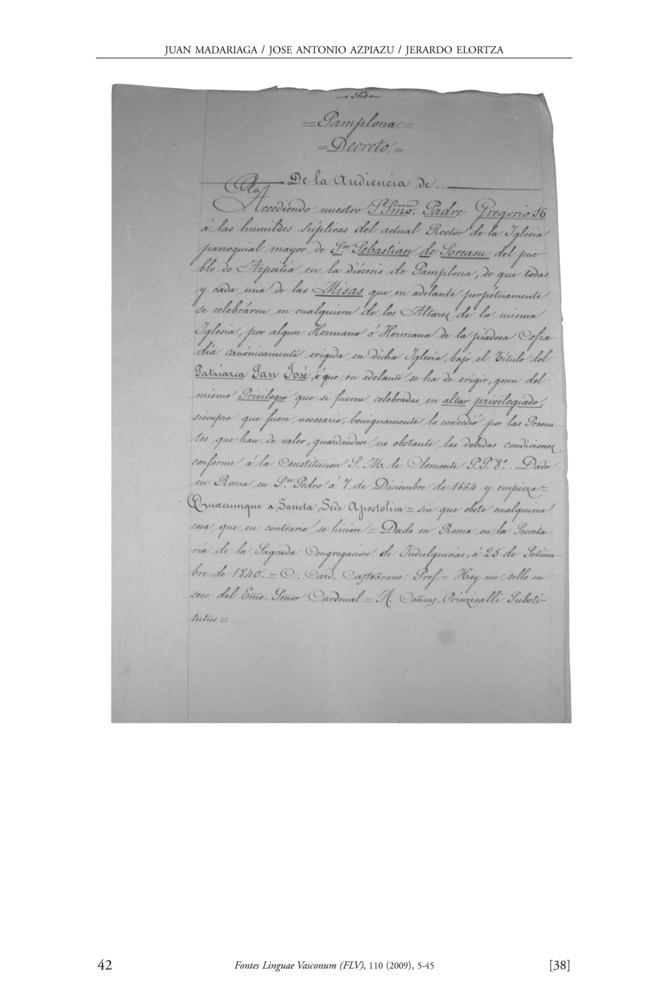 JUAN MADARIAGA / JOSE ANTONIO AZPIAZU / JERARDO ELORTZA
=Pamplona=
=Decreto.=
De la Audiencia de
Accediendo nuestro SSmō. Padre Gregorio 16
á las humildes súplicas del actual Rector de la Iglesia
parroquial mayor de Sⁿ Sebastian de Soreasu del pue-
blo de Azpeitia en la diócesis de Pamplona, de que todas
y cada una de las Misas que en adelante perpétuamente
se celebráren en cualquiera de los Altares de la misma
Iglesia, por algun Hermano ó Hermana de la piadosa Cofra
día canónicamente erigida en dicha Iglesia, bajo el Título del
Patriarca San José, ó que en adelante se ha de erigir, gocen del
mismo Privilegio que si fueran celebradas en altar privilegiado,
siempre que fuere necesario, benignamente lo concedió por las Presen-
tes que han de valer, guardandose no obstante las debidas condiciones
conforme á la Constitución S. M. de Clemente P.P. 8º. Dado
en Roma en Sⁿ Pedro á 7 de Diciembre de 1664 y empieza =
Quæcumque a Sancta Sede Apostolica = sin que obste cualquiera
cosa que en contrario se hiciere = Dado en Roma en la Secreta-
ría de la Sagrada Congregacion de Indulgencias, á 25 de Setiem-
bre de 1840. = C. Card. Castracane Pref. = Hay un sello en
seco del Emō. Señor Cardenal = A. Can. Prinzivalli Substi-
tutus =
42
Fontes Linguae Vasconum (FLV), 110 (2009), 5-45
[38]